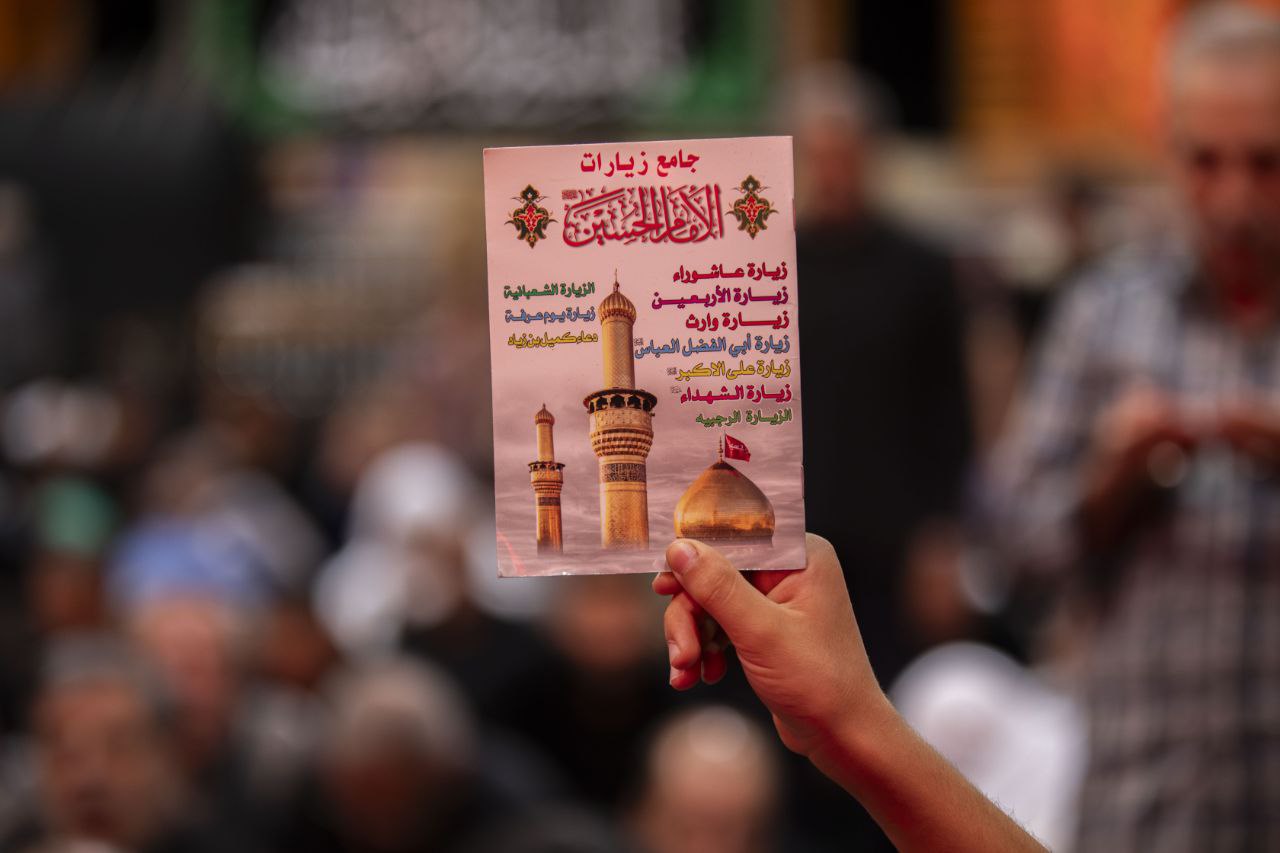 جامع زيارات
الإمام الحسين
زيارة عاشوراء
زيارة الأربعين
زيارة وارث
زيارة أبي الفضل العباس
زيارة على الاكبر
زيارة الشهداء
الزيارة الرجبيه
الزيارة الشعبانية
زيارة يوم عرفة
دعاء كميل بن زياد